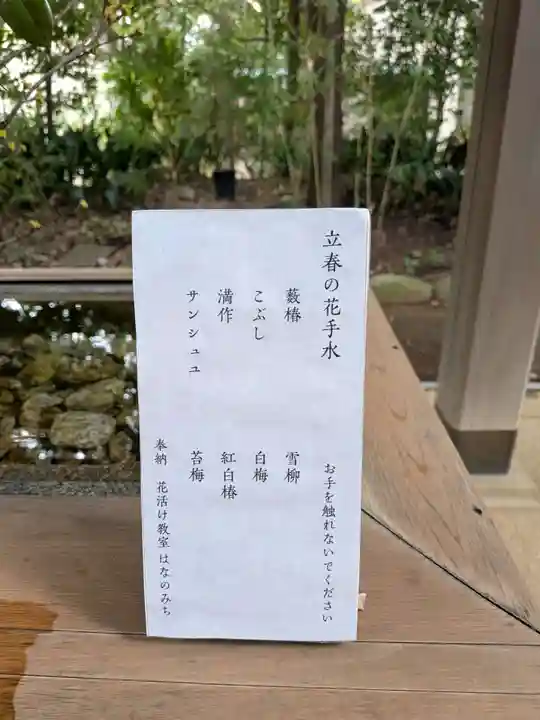 立春の花手水
お手を触れないでください
藪椿 雪柳
こぶし 白梅
満作 紅白椿
サンシュユ 苔梅
奉納 花活け教室 はなのみち